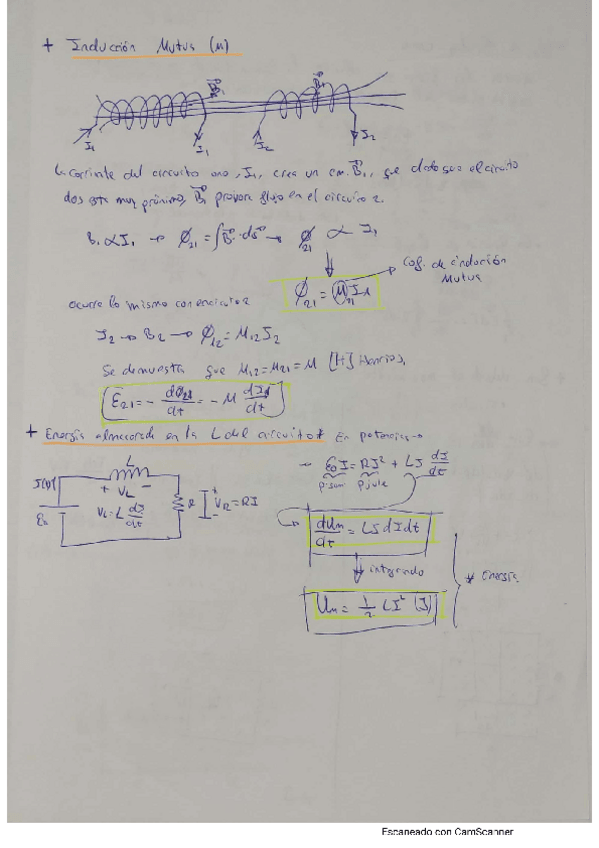 + Inducción Mutua (M)
I₁ I₁ I₂ I₂
La corriente del circuito uno, I₁, crea un c.m. B⃗₁, que dado que el circuito
dos esta muy próximo, B⃗₁ provoca flujo en el circuito 2.
B₁ ∝ I₁ → Φ₂₁ = ∫B⃗·ds⃗ → Φ₂₁ ∝ I₁
Φ₂₁ = M₂₁ I₁ → Cof. de inducción Mutua
ocurre lo mismo con en circuito 2
I₂ → B₂ → Φ₁₂ = M₁₂ I₂
Se demuestra que M₁₂ = M₂₁ = M [H] Henrios.
E₂₁ = - dΦ₂₁/dt = - M dI₁/dt
+ Energía almacenada en la L del circuito * En potencias →
L
I(t)
+ V_L -
V_L = L dI/dt
ε₀
R
+ V_R = RI
-
→ ε₀I = RI² + LI dI/dt
p. sum p. joule
dUm/dt = LI dI dt
integrando
* Energía
Um = 1/2 LI² (J)
Escaneado con CamScanner